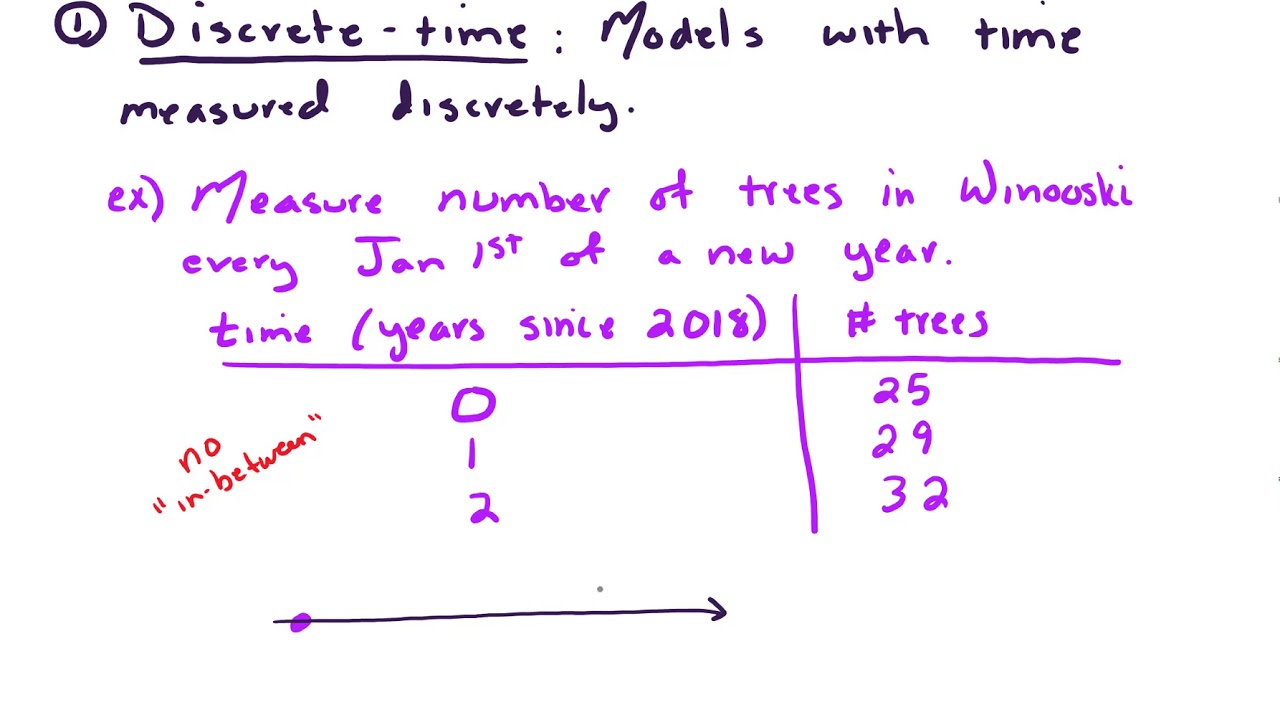 ① Discrete-time: Models with time
measured discretely.
ex) Measure number of trees in Winooski
every Jan 1st of a new year.
time (years since 2018) # trees
0 25
1 29
2 32
no
"in-between"